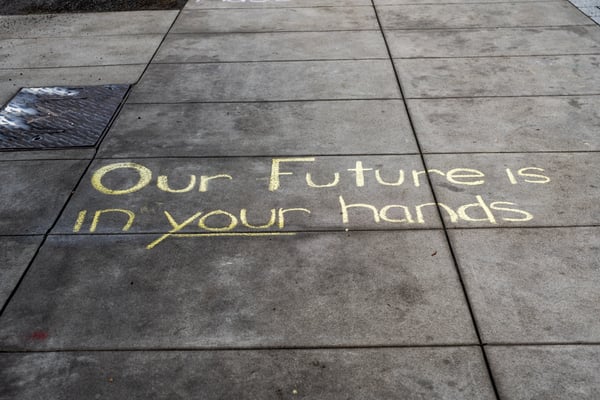 Our Future is
in your hands